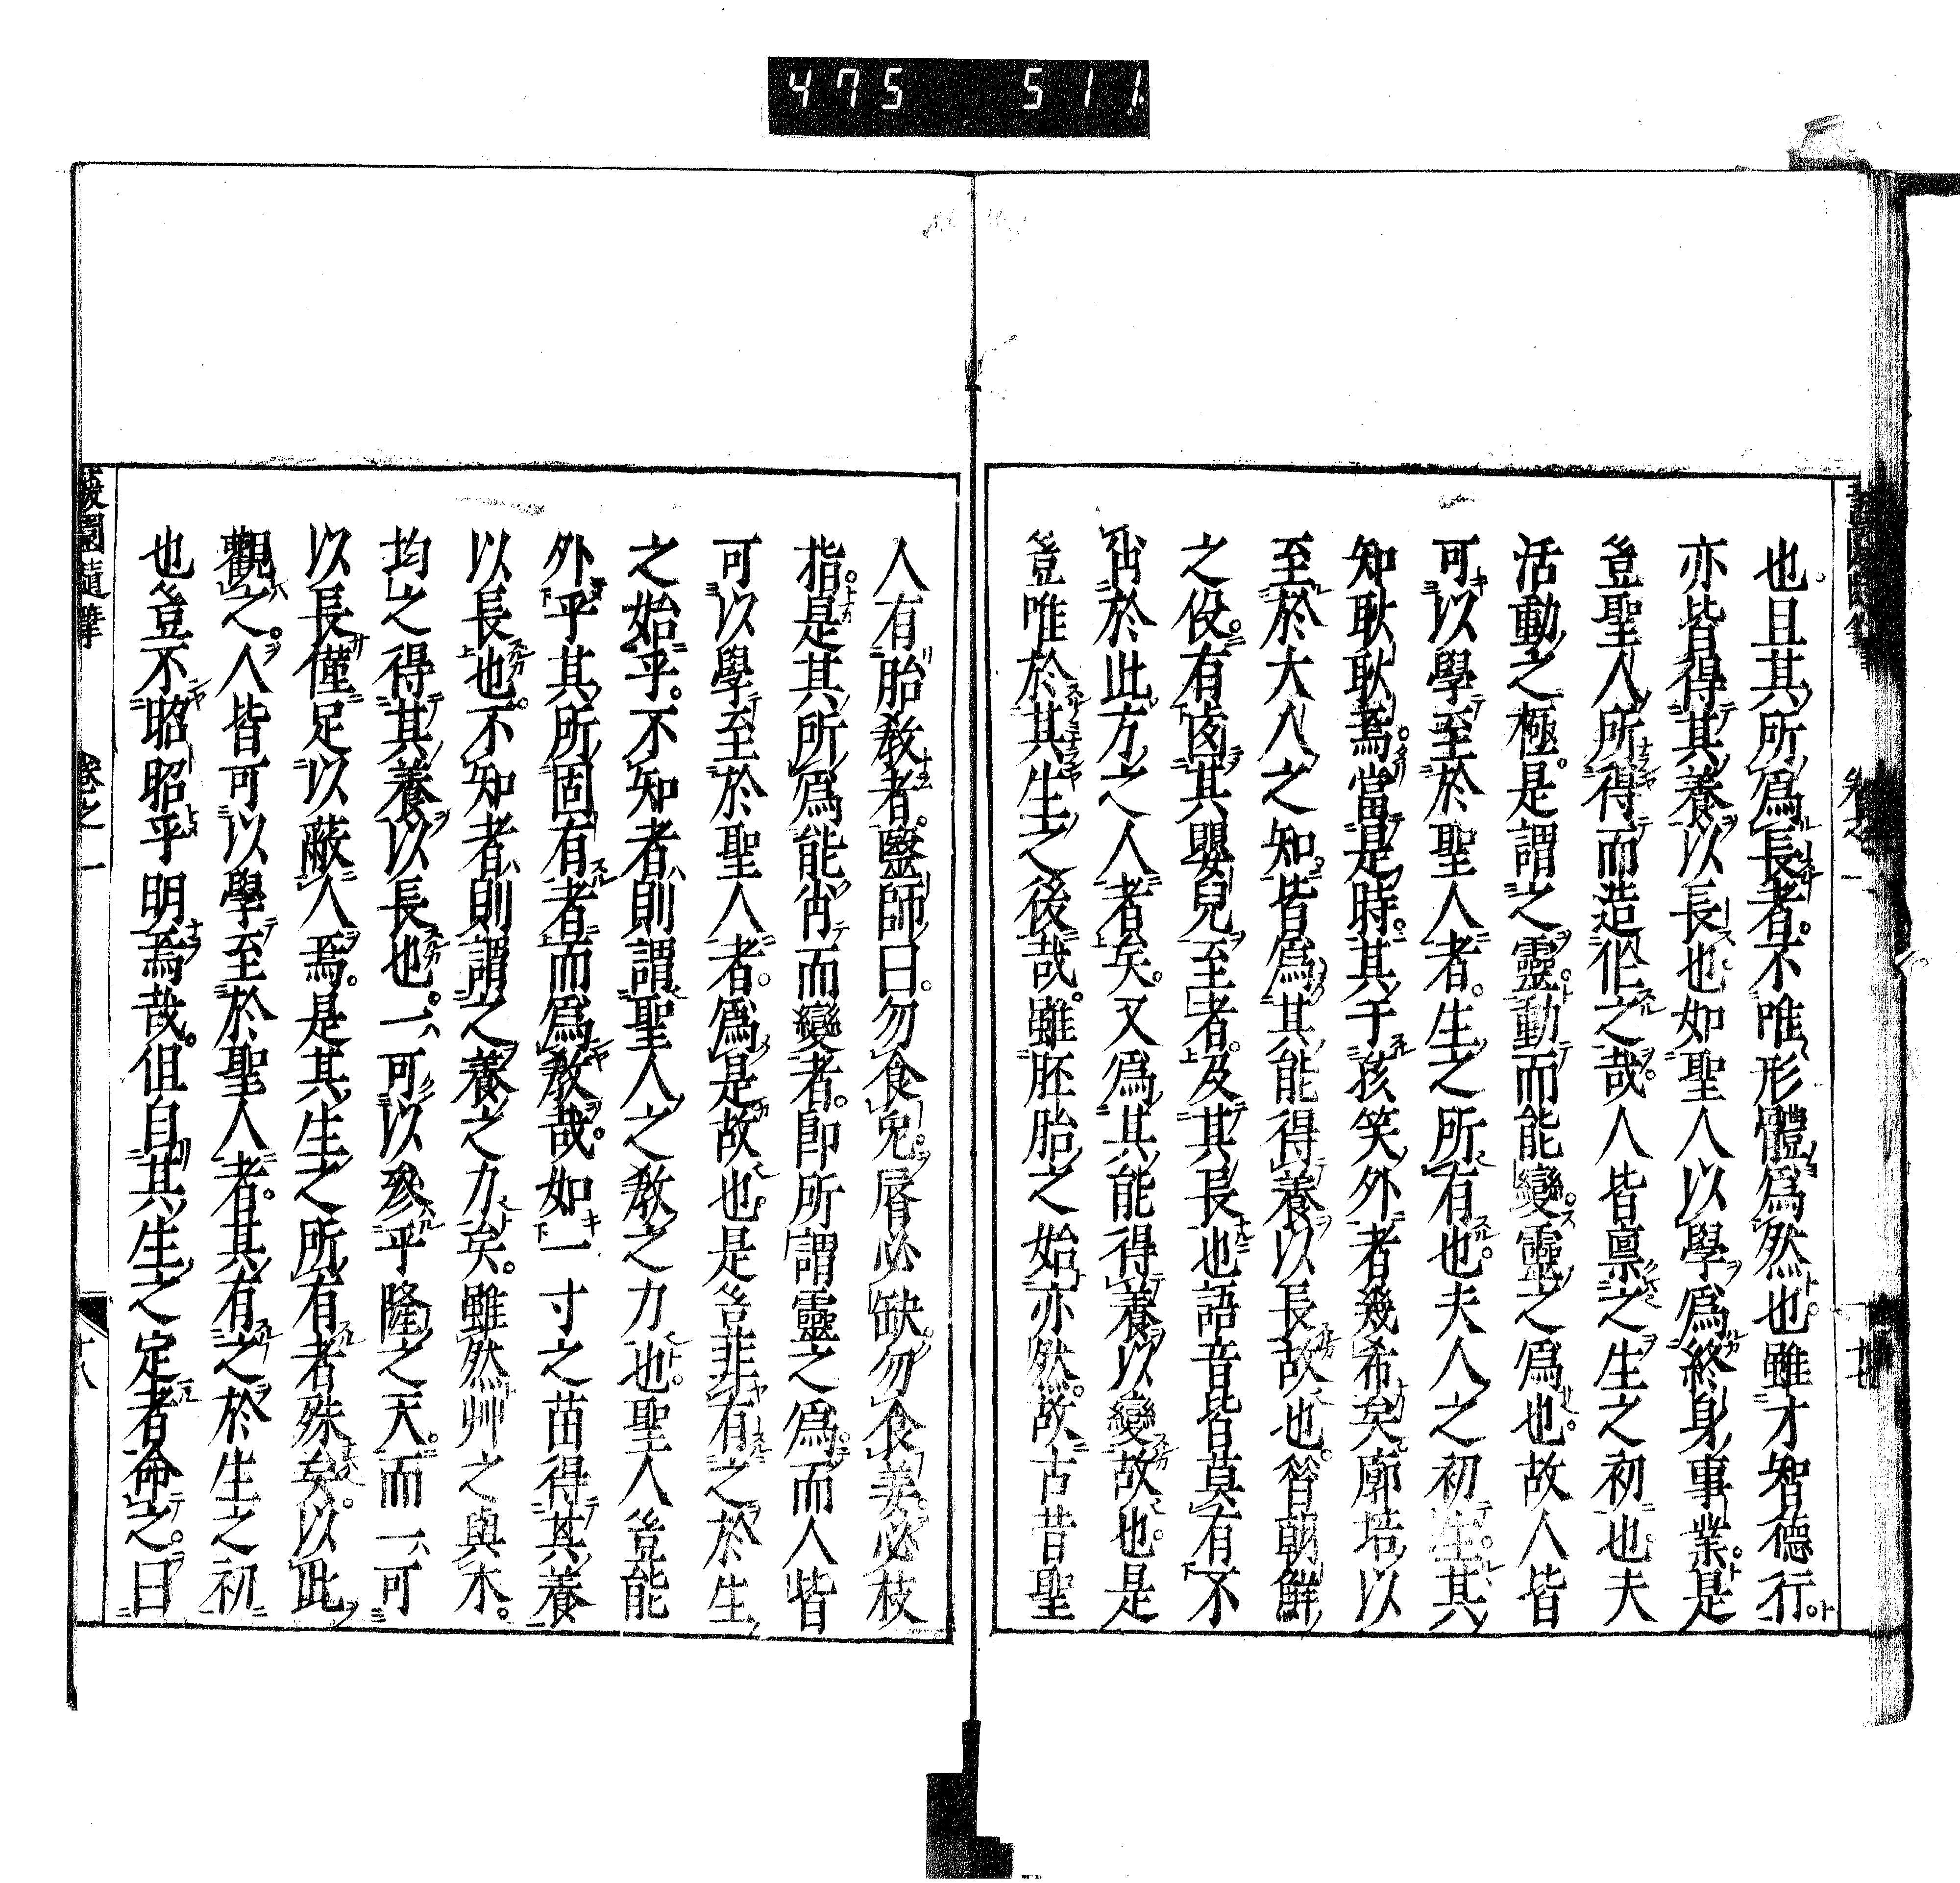 475 511
也。且其所爲長者。不唯形體爲然也。雖才智德行。
亦皆得其養以長也如聖人以學爲終身事業。是
豈聖人所得而造作之哉。人皆禀之生之初也夫
活動之極。是謂之靈。動而能變。靈之爲也。故人皆
可以學至於聖人者。生之所有也。夫人之初生。其
知耿耿焉。當是時。其于孩笑外者幾希矣。廓培以
至於大人之知。皆爲其能得養以長故也。昝朝鮮
之役。有卤其嬰兒至者。及其長也語音皆莫有不
肖於此方之人者矣。又爲其能得養以變故也。是
豈唯於其生之後哉。雖胚胎之始亦然。故古昔聖
人有胎敎者。毉師曰。勿食兔。脣必缺。勿食姜。必枝
指。是其所爲能肖而變者。卽所謂靈之爲。而人皆
可以學至於聖人者。爲是故也。是豈非有之於生
之始乎。不知者則謂聖人之敎之力也。聖人豈能
外乎其所固有者而爲敎哉。如一寸之苗得其養
以長也。不知者則謂之養之力矣。雖然艸之與木。
均之得其養以長也。一可以參乎隆之天。而一可
以長僅足以蔽人焉。是其生之所有者殊矣。以此
觀之。人皆可以學至於聖人者。其有之於生之初
也豈不昭昭乎明焉哉。但自其生之定者命之。曰
蘐園隨筆 卷之一 十八